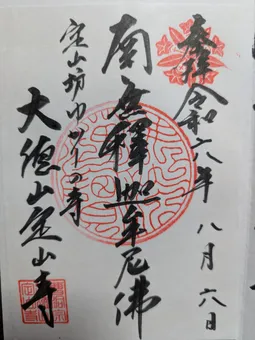 奉拝 令和六年 八月 六日
南無釋迦牟尼佛
定山坊ゆかりの寺
大徳山定山寺